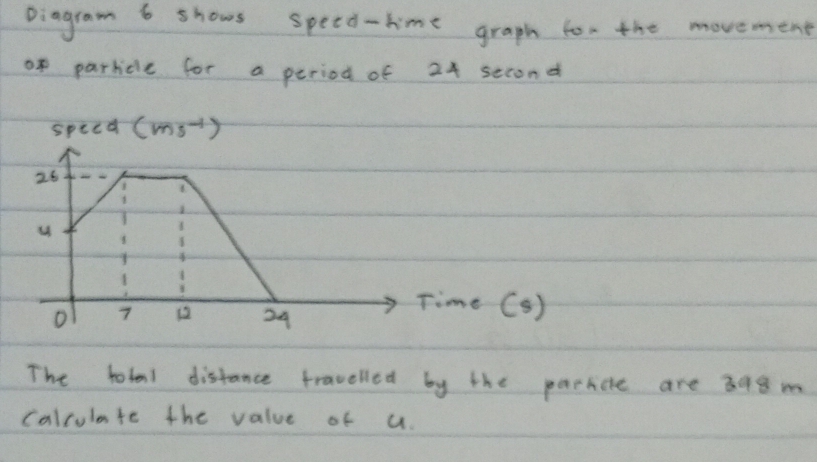 Diagram 6 shows speed-time graph for the movement
of particle for a period of 24 second
speed (ms⁻¹)
26
u
0 7 12 24 Time (s)
The total distance travelled by the particle are 398 m
Calculate the value of u.